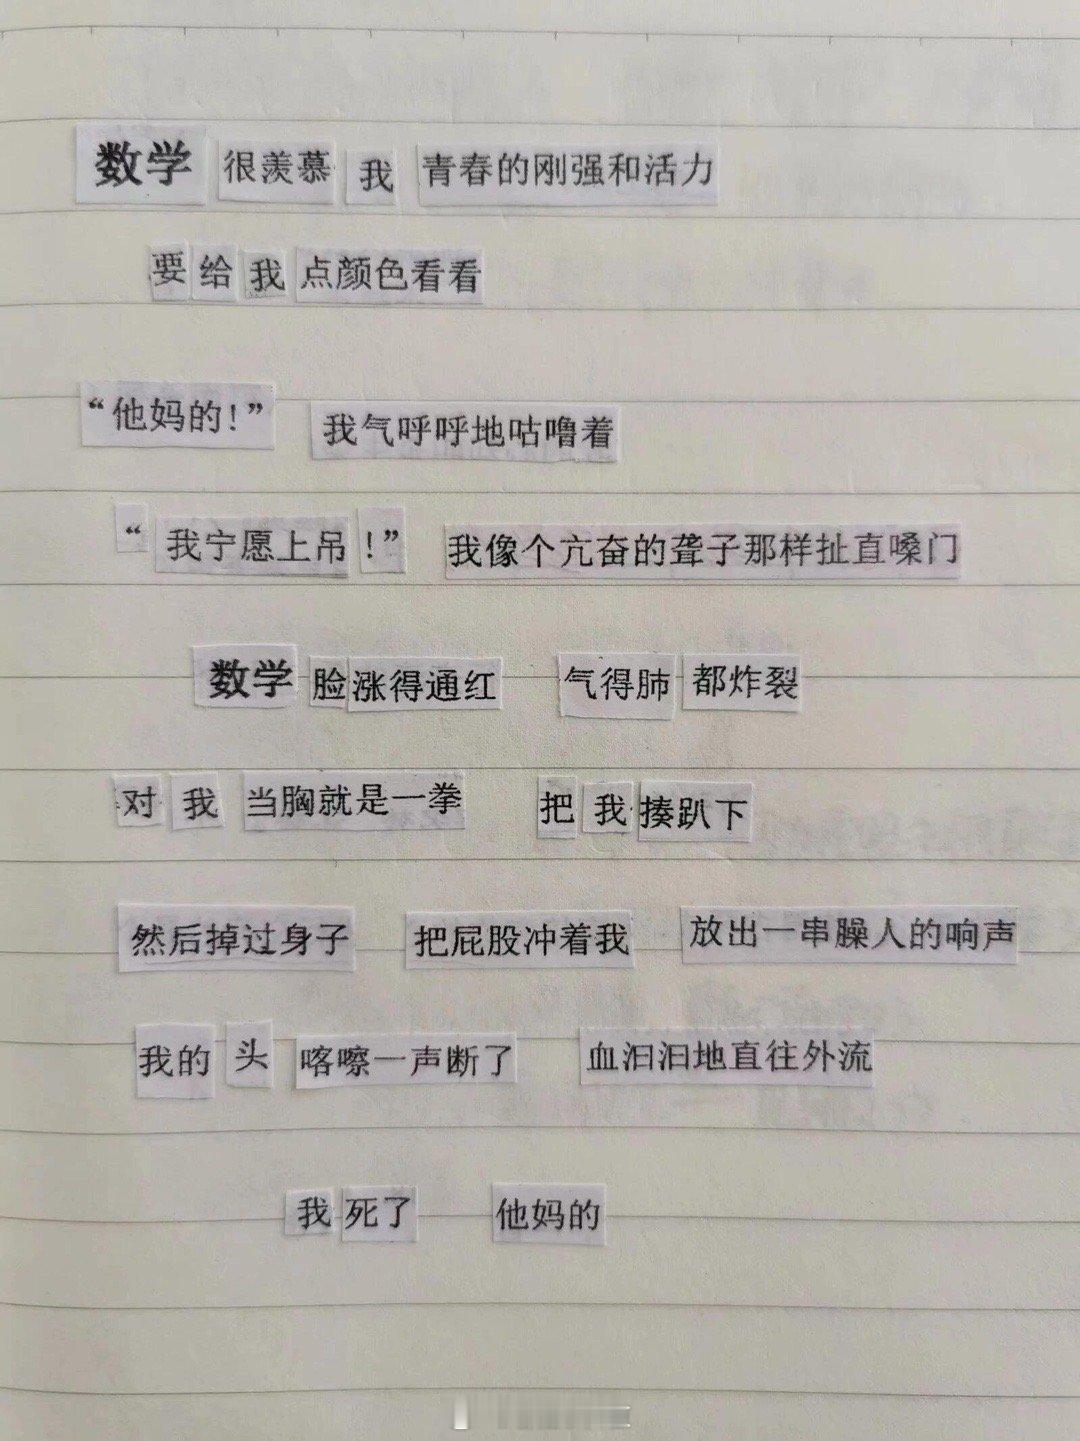 数学 很羡慕 我 青春的刚强和活力
要 给 我 点颜色看看
“他妈的!” 我气呼呼地咕噜着
“ 我宁愿上吊 !” 我像个亢奋的聋子那样扯直嗓门
数学 脸涨得通红 气得肺 都炸裂
对 我 当胸就是一拳 把 我 揍趴下
然后掉过身子 把屁股冲着我 放出一串臊人的响声
我的 头 喀嚓一声断了 血汩汩地直往外流
我 死了 他妈的